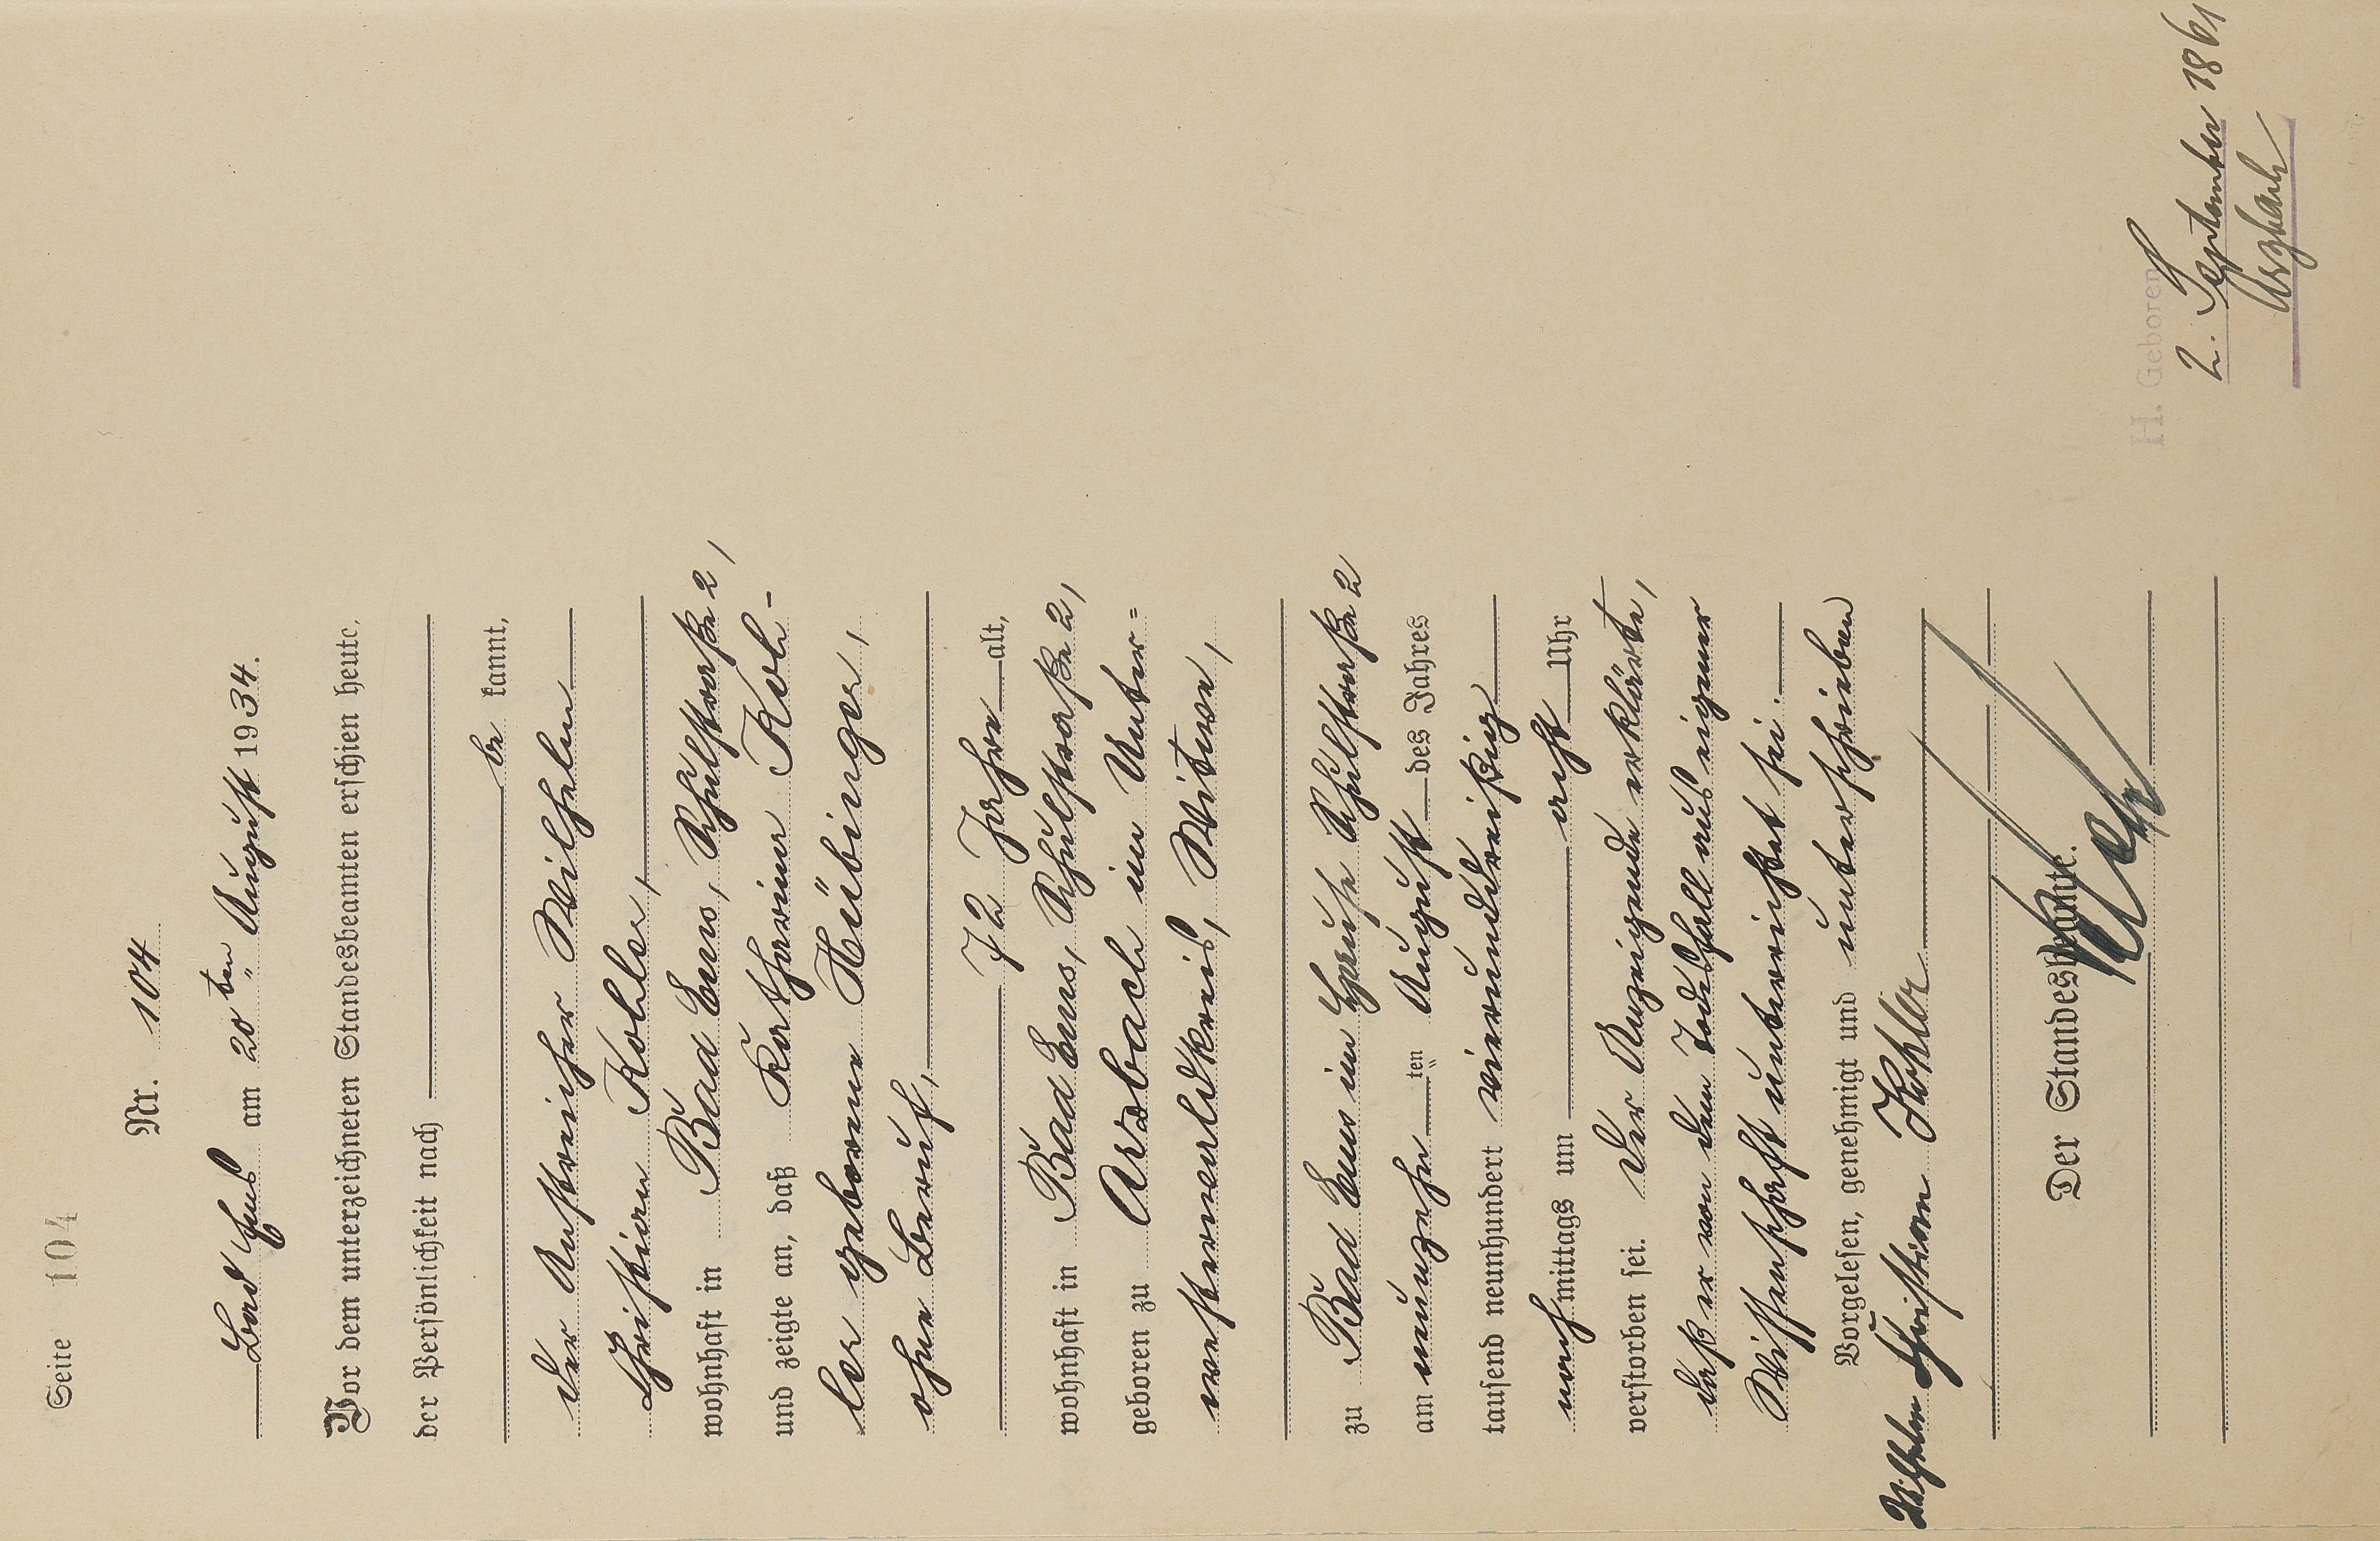 Seite 104
Nr. 104
Bad Ems am 20ten August 1934.
Vor dem unterzeichneten Standesbeamten erschien heute,
der Persönlichkeit nach
be kannt,
der Anstreicher Wilhelm
Christian Kohler,
wohnhaft in Bad Ems, Schulstraße 2,
und zeigte an, daß Katharina Koh-
ler geborene Hübinger,
ohne Beruf,
72 Jahre alt,
wohnhaft in Bad Ems, Schulstraße 2,
geboren zu Arzbach im Unter=
westerwaldkreis, Witwe,
zu Bad Ems im Hause Schulstraße 2
am neunzehn ten August des Jahres
tausend neunhundert vierunddreißig
nach mittags um acht Uhr
verstorben sei. Der Anzeigende erklärte,
daß er von dem Todesfall aus eigener
Wissenschaft unterrichtet sei.
Vorgelesen, genehmigt und unterschrieben
Wilhelm Christian Kohler
Der Standesbeamte.
H. Geboren
2. September 1861
Arzbach